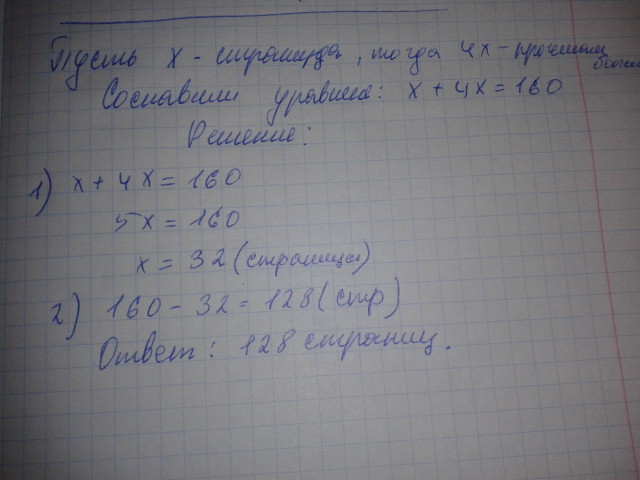 Пусть x - страница, тогда 4x - прочитали
Составили уравнение: x + 4x = 160
Решение:
1) x + 4x = 160
5x = 160
x = 32 (страницы)
2) 160 - 32 = 128 (стр)
Ответ: 128 страниц.